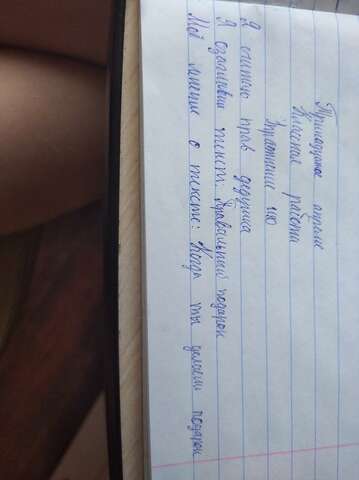 Тринадцатое апреля
Классная работа
Упражнение 410
Я считаю прав дедушка
Я озаглавил текст: Правильный подарок
Моё мнение о тексте: Когда ты делаешь подарок